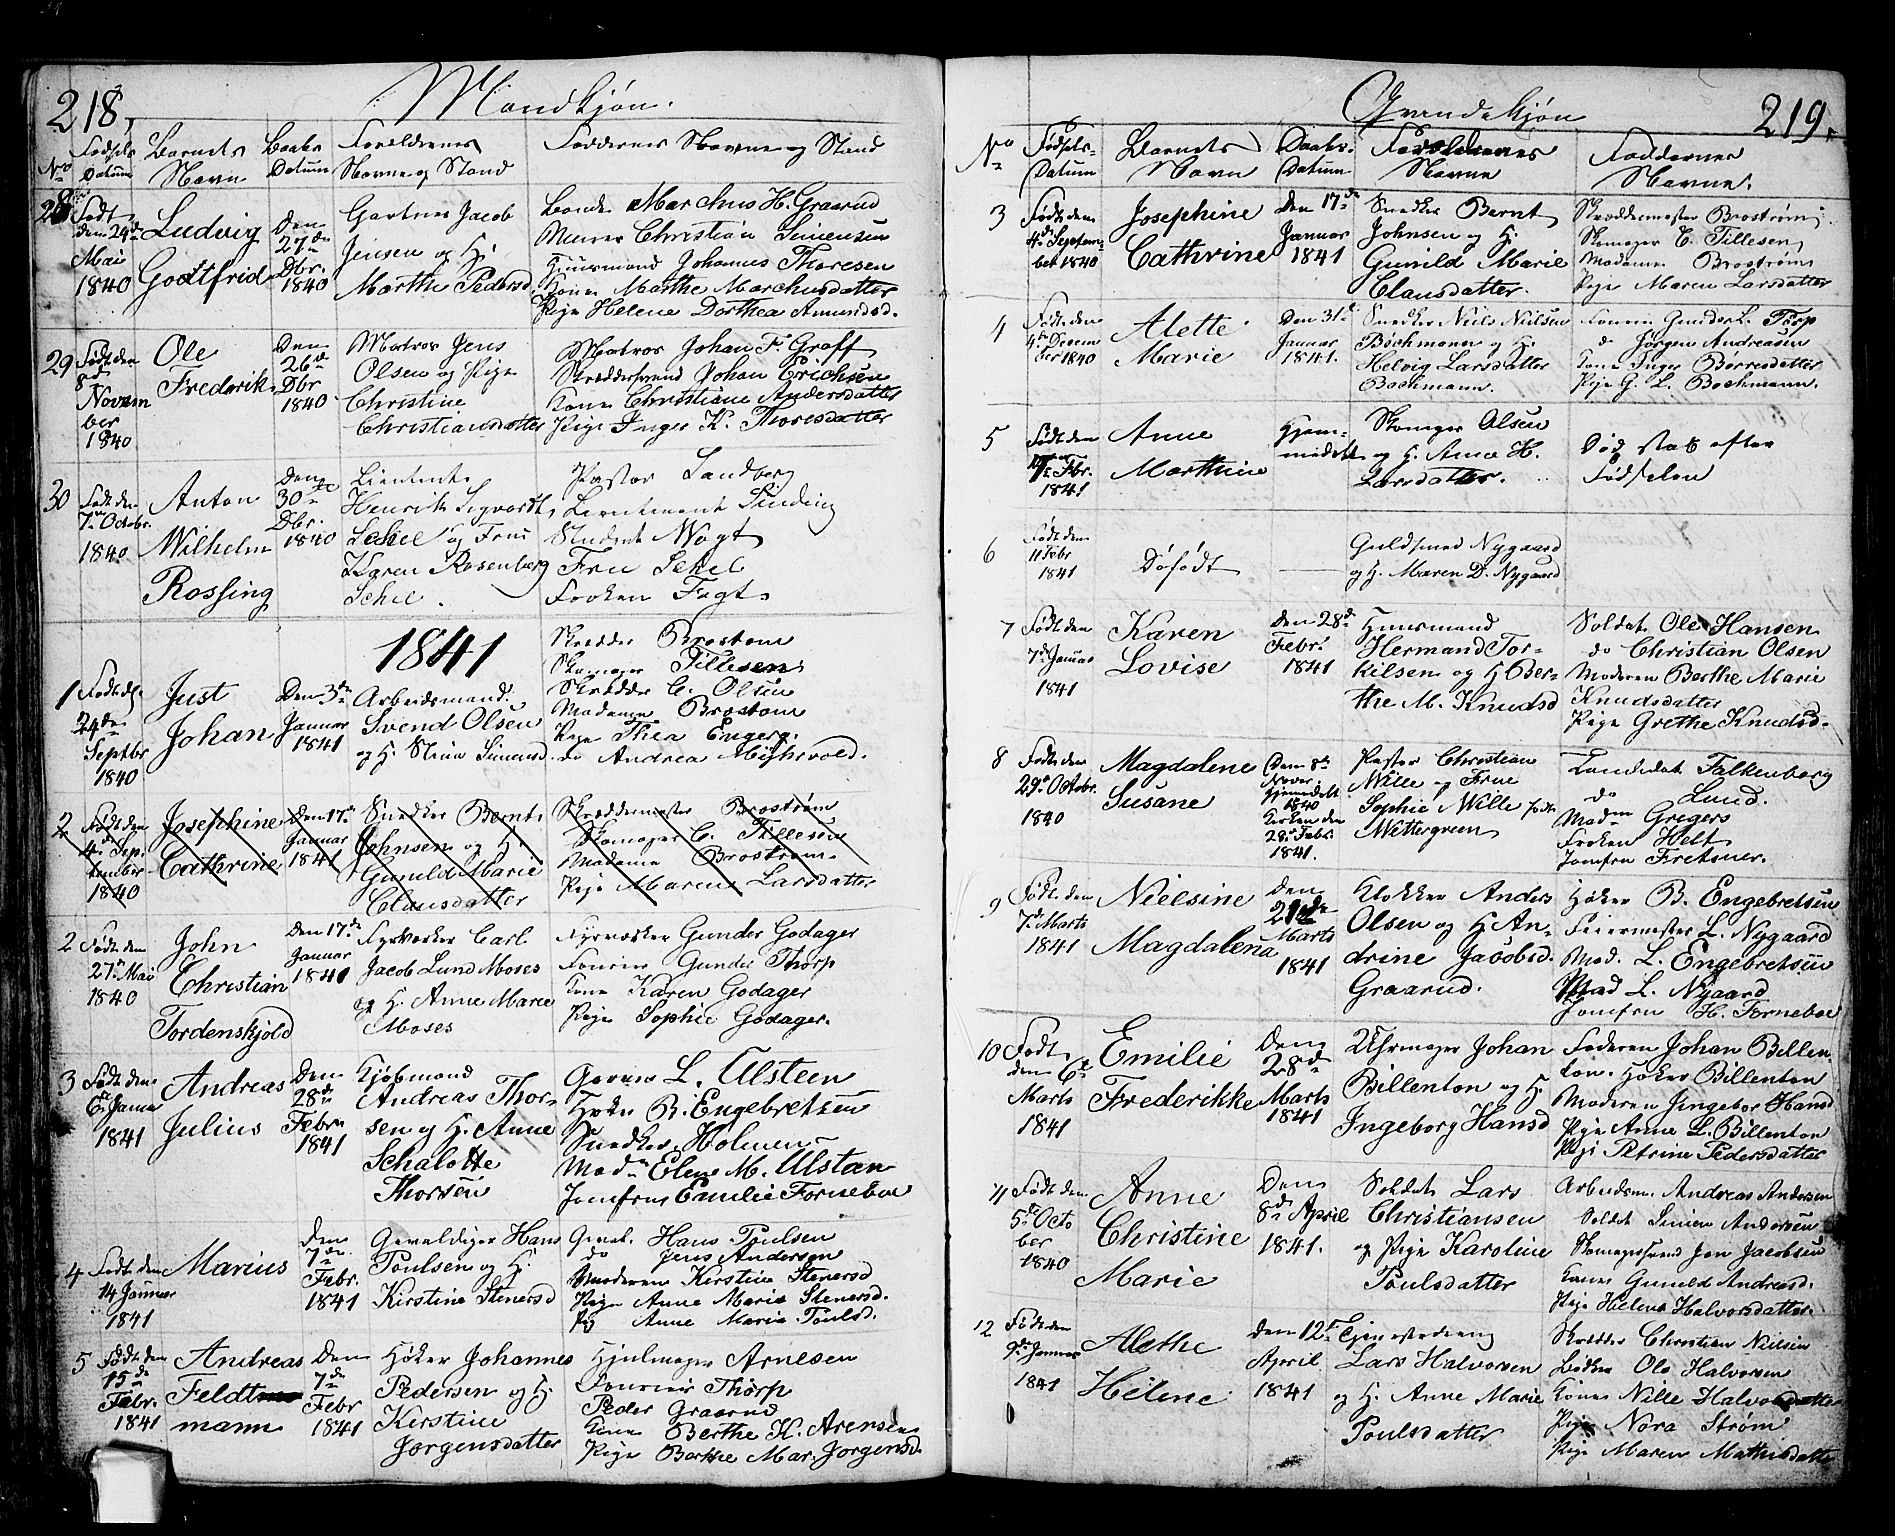 218,
Mandkjøn.
No
Fødsels Datum
Barnets Navn
Daabs Datum
Forældrenes Navne og Stand
Faddernes Navne og Stand
28
Født den 24de Mai 1840
Ludvig Godtfrid
Den 27de Dbr. 1840
Gartner Jacob
Jensen og H.
Marthe Pedersd.
Bonde Marchus H. Graarud
Murer Christian Simensen
Huusmand Johannes Thoresen
Konen Marthe Marchusdatter
Pige Helene Dorthea Amundsd.
29
Født den 8de Novem ber 1840
Ole Frederik
Den 26de Dbr 1840
Matros Jens
Olsen og Pige
Christine
Christiansdatter
Matros Johan F. Graff
Skræddersvend Johan Erichsen
Kone Christiane Andersdatter
Pige Inger K. Thoresdatter
30
Født den 7de Octobr. 1840
Anton Wilhelm Rossing
Den 30te Dbr. 1840
Lieutenant
Henrik Segvardt
Schel og Frue
Karen Rosenberg
Schel.
Pastor Sandberg
Lieutenant Sinding
Student Wogt
Frue Schel
Frøken Fogt
1841
1
Født d. 24de Septbr 1840
Just Johan
Den 3de Januar 1841
Arbeidsmand
Svend Olsen
og H. Stina Simensd.
Skrædder Brostøm
Skomager Tillesen
Skrædder C. Olsen
Madame Brostøm
Pige Thea Engerg.
do Andrea Mythrvold.
2
Født den 4de September 1840
Josephine Cathrine
Den 17de Januar 1841
Snedker Bernt
Johnsen og H.
Gunild Marie
Clausdatter
Skræddermester Brostrøm
Skomager C. Tillesen
Madame Brostrøm
Pige Maren Larsdatter
2
Født den 27de Mai 1840
John Christian Tordenskjold
Den 17de Januar 1841
Fyrværker Carl
Jacob Lund Moses
og H. Anne Marie
Moses
Fyrværker Gunder Godager
Fourier Gunder Thorp
Kone Karen Godager
Pige Sophie Godager.
3
Født den 6te Januar 1841
Andreas Julius
Den 28de Febr. 1841
Kjøbmand
Andreas Thor-
sen og H. Anne
Schalotte
Thorsen
Garver L. Ulsteen
Høker B. Engebretsen
Snedker Holmen
Madm Elen M. Ulstan
Jomfrue Emilie Fornebøe
4
Født den 14 Januar 1841
Marius
Den 7de Febr. 1841
Gevaldiger Hans
Poulsen og H.
Kirstine Stenersd
Geval. Hans Poulsen
do Jens Andersen
Moderen Kirstine Stenersd
Pige Anne Marie Stenersd.
Pig Anne Maria Poulsd.
5
Født den 15de Febr. 1841
Andreas Feldtmann
Den 7de Febr 1841
Høker Johannes
Pedersen og H.
Kirstine
Jørgensdatter
Hjulmager Arnesen
Fourier Thorp
Peder Graarud
Kone Berthe K. Arensen
Pige Berthe Mar. Jørgensd.
219.
Qvindekjøn
No
Fødsels-Datum
Barnets Navn
Daabs-Datum
Forældrenes Navne
Faddernes Navne.
3
Født den 4de September 1840
Josephine Cathrine
Den 17de Januar 1841
Snedker Bernt
Johnsen og H.
Gunild Marie
Clausdatter.
Skræddermester Brostrøm
Skomager C. Tillesen
Madame Brostrøm
Pige Maren Larsdatter
4
Født den 4de Decem ber 1840
Alette Marie
Den 31te Januar 1841.
Snedker Niels Nielsen
Bochmann og H.
Helvig Larsdatter
Bochmann.
Fourier Gunder L. Torp
do Jørgen Andreasen
Kone Inger Børresdatter
Pige G. L. Bochmann.
5
Født den Febr. 1841
Anne Marthine
Hjemmedøbt
Skomager Olsen
og H. Anne H.
Larsdatter.
Død strax efter
Fødselen
6
Født 11 Febr 1841
Døfødt
Guldsmed Nygaard
og H. Maren D. Nygaard
7
Født den 7de Januar 1841
Karen Lovise
Den 28de Febr. 1841
Huusmand
Hermand Tor-
kilsen og H Ber-
the M. Knudsd
Soldat Ole Hansen
do Christian Olsen
Moderen Berthe Marie
Knudsdatter
Pige Grethe Knudsd.
8
Født den 29de Octobr. 1840
Magdalene Susane
Den 8de Novbr. hjemmedøbt 1840 Kirken den 28de Febr. 1841.
Pastor Christian
Wille og Frue
Sophie Wille født
Wettergreen
Candidat Falkenborg
do Lund.
Madm Gregers
Frøken Helt
Jomfru Fretsner.
9
Født den 7de Marts 1841
Nielsine Magdalena
Den 21de Marts 1841
Klokker Anders
Olsen og H An-
drine Jacobsd.
Graarud.
Høker B. Engebretsen
Feiermester L. Nygaard
Mad. L. Engebretsen
Mad L. Nygaard
Jomfru H. Forneboe
10
Født den 6te Marts 1841
Emilie Frederikke
Den 28de Marts 1841
Uhrmager Johan
Billenton og H.
Ingeborg Hansd
Faderen Johan Billen
ton. Høker Billenton
Moderen Ingebor Hansd
Pige Anne L. Billenton
Pige Petrine Pedersdatter
11
Født den 5te Octo ber 1840
Anne Christine Marie
Den 8de April 1841.
Soldat Lars
Christiansen
og Pige Karoline
Poulsdatter
Arbeidsm. Andreas Andersen
Soldat Simen Andersen
Skomagersvend Jon Jacobsen
Konen Gunild Andreasd.
Pige Helene Halvorsdatter.
12
Født den 9de Januar 1841
Alethe Helene
den 12te April 1841
Tjenestedreng
Lars Halvorsen
og H. Anne Marie
Poulsdatter
Skrædder Christian Nielsen
Bødker Ole Halvorsen
Konen Nille Halvorsdatter
Pige Nora Strøm
Pige Maren Mathisdatter